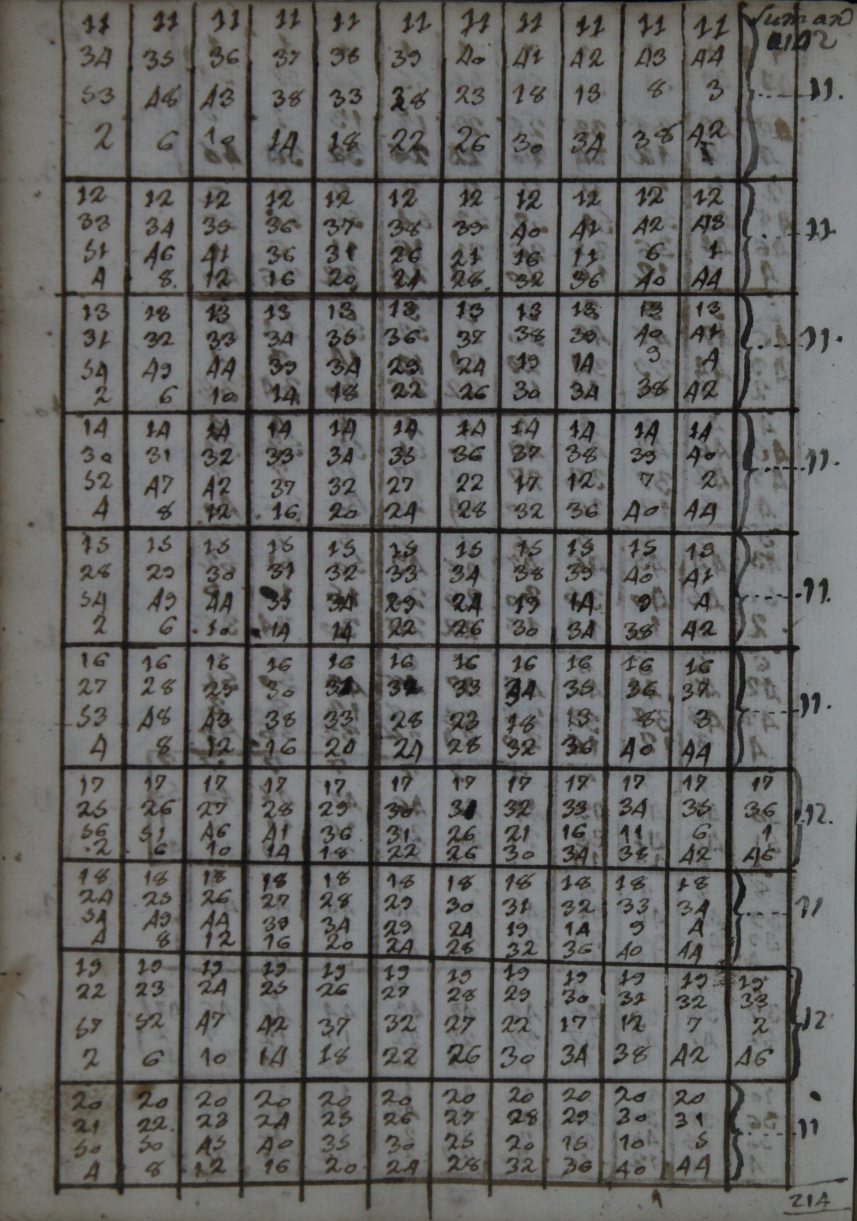 11 11 11 11 11 11 11 11 11 11 11 Suman
34 35 36 37 38 39 40 41 42 43 44
53 48 43 38 33 28 23 18 13 8 3 11.
2 6 10 14 18 22 26 30 34 38 42
12 12 12 12 12 12 12 12 12 12 12
33 34 35 36 37 38 39 40 41 42 43 11
51 46 41 36 31 26 21 16 11 6 1
4 8 12 16 20 24 28 32 36 40 44
13 13 13 13 13 13 13 13 13 13 13
31 32 33 34 35 36 37 38 39 40 41 11.
54 49 44 39 34 29 24 19 14 9 4
2 6 10 14 18 22 26 30 34 38 42
14 14 14 14 14 14 14 14 14 14 14
30 31 32 33 34 35 36 37 38 39 40 11.
52 47 42 37 32 27 22 17 12 7 2
4 8 12 16 20 24 28 32 36 40 44
15 15 15 15 15 15 15 15 15 15 15
28 29 30 31 32 33 34 38 39 40 41
54 49 44 39 34 29 24 19 14 9 4 11.
2 6 10 14 14 22 26 30 34 38 42
16 16 16 16 16 16 16 16 16 16 16
27 28 29 30 31 32 33 34 35 36 37 11.
53 48 43 38 33 28 23 18 13 8 3
4 8 12 16 20 24 28 32 36 40 44
17 17 17 17 17 17 17 17 17 17 17 17
25 26 27 28 29 30 31 32 33 34 35 36 12.
56 51 46 41 36 31 26 21 16 11 6 1
2 6 10 14 18 22 26 30 34 38 42 46
18 18 18 18 18 18 18 18 18 18 18
24 25 26 27 28 29 30 31 32 33 34 11
54 49 44 39 34 29 24 19 14 9 4
4 8 12 16 20 24 28 32 36 40 44
19 19 19 19 19 19 19 19 19 19 19 19
22 23 24 25 26 27 28 29 30 31 32 33
57 52 47 42 37 32 27 22 17 12 7 2 12
2 6 10 14 18 22 26 30 34 38 42 46
20 20 20 20 20 20 20 20 20 20 20
21 22 23 24 25 26 27 28 29 30 31 11
50 45 40 35 30 25 20 15 10 5
4 8 12 16 20 24 28 32 36 40 44
214